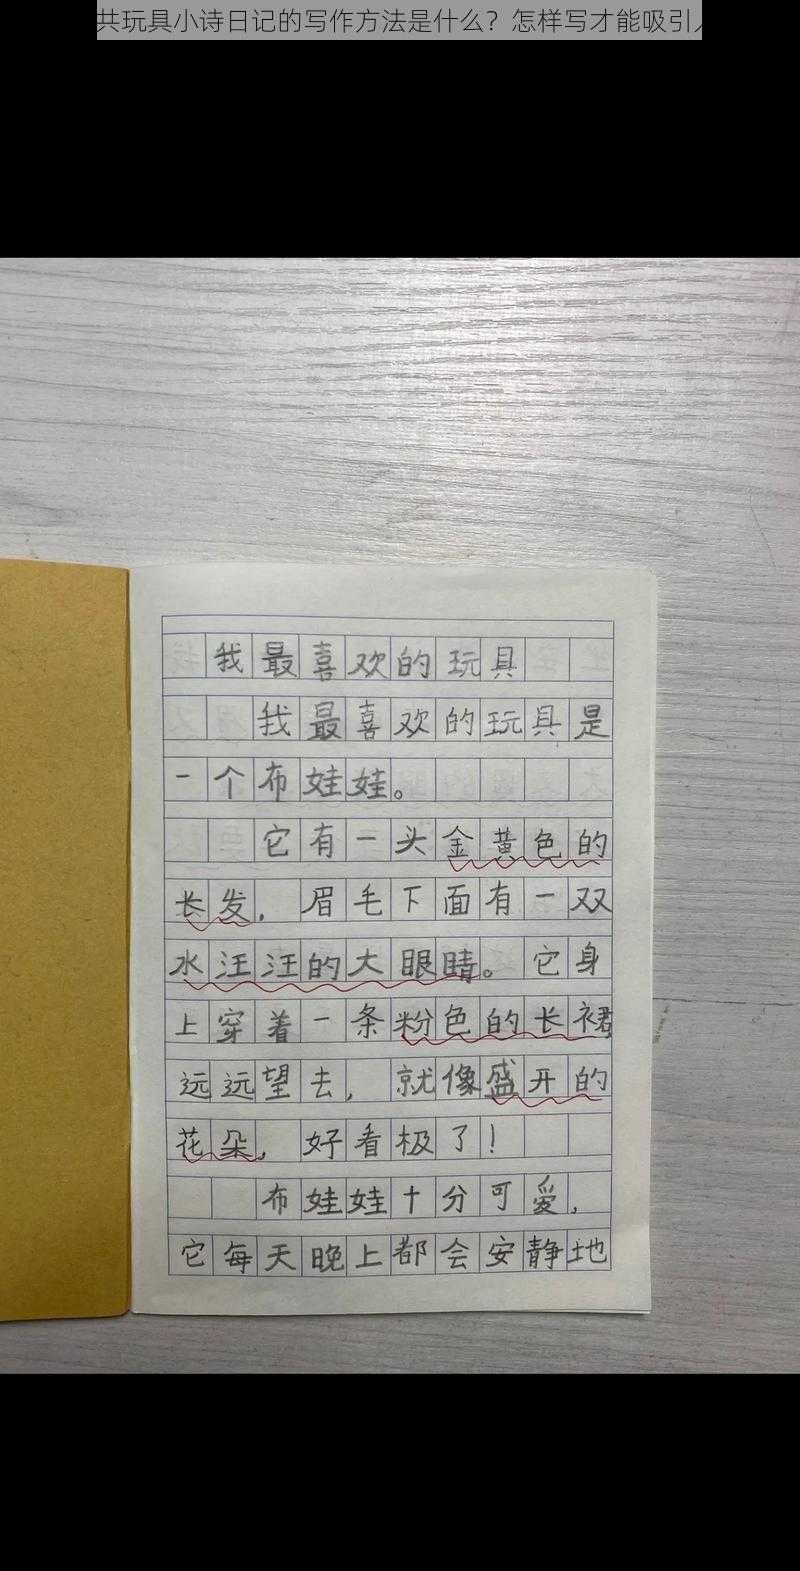 共玩具小诗日记的写作方法是什么？怎样写才能吸引
我最喜欢的玩具
我最喜欢的玩具是
一个布娃娃。
它有一头金黄色的
长发，眉毛下面有一双
水汪汪的大眼睛。它身
上穿着一条粉色的长裙
远远望去，就像盛开的
花朵，好看极了！
布娃娃十分可爱，
它每天晚上都会安静地